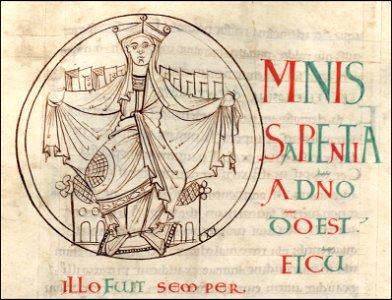 MNIS
SAPIENTIA
A DNO
DO EST.
ET CU
ILLO FUIT SEMPER.